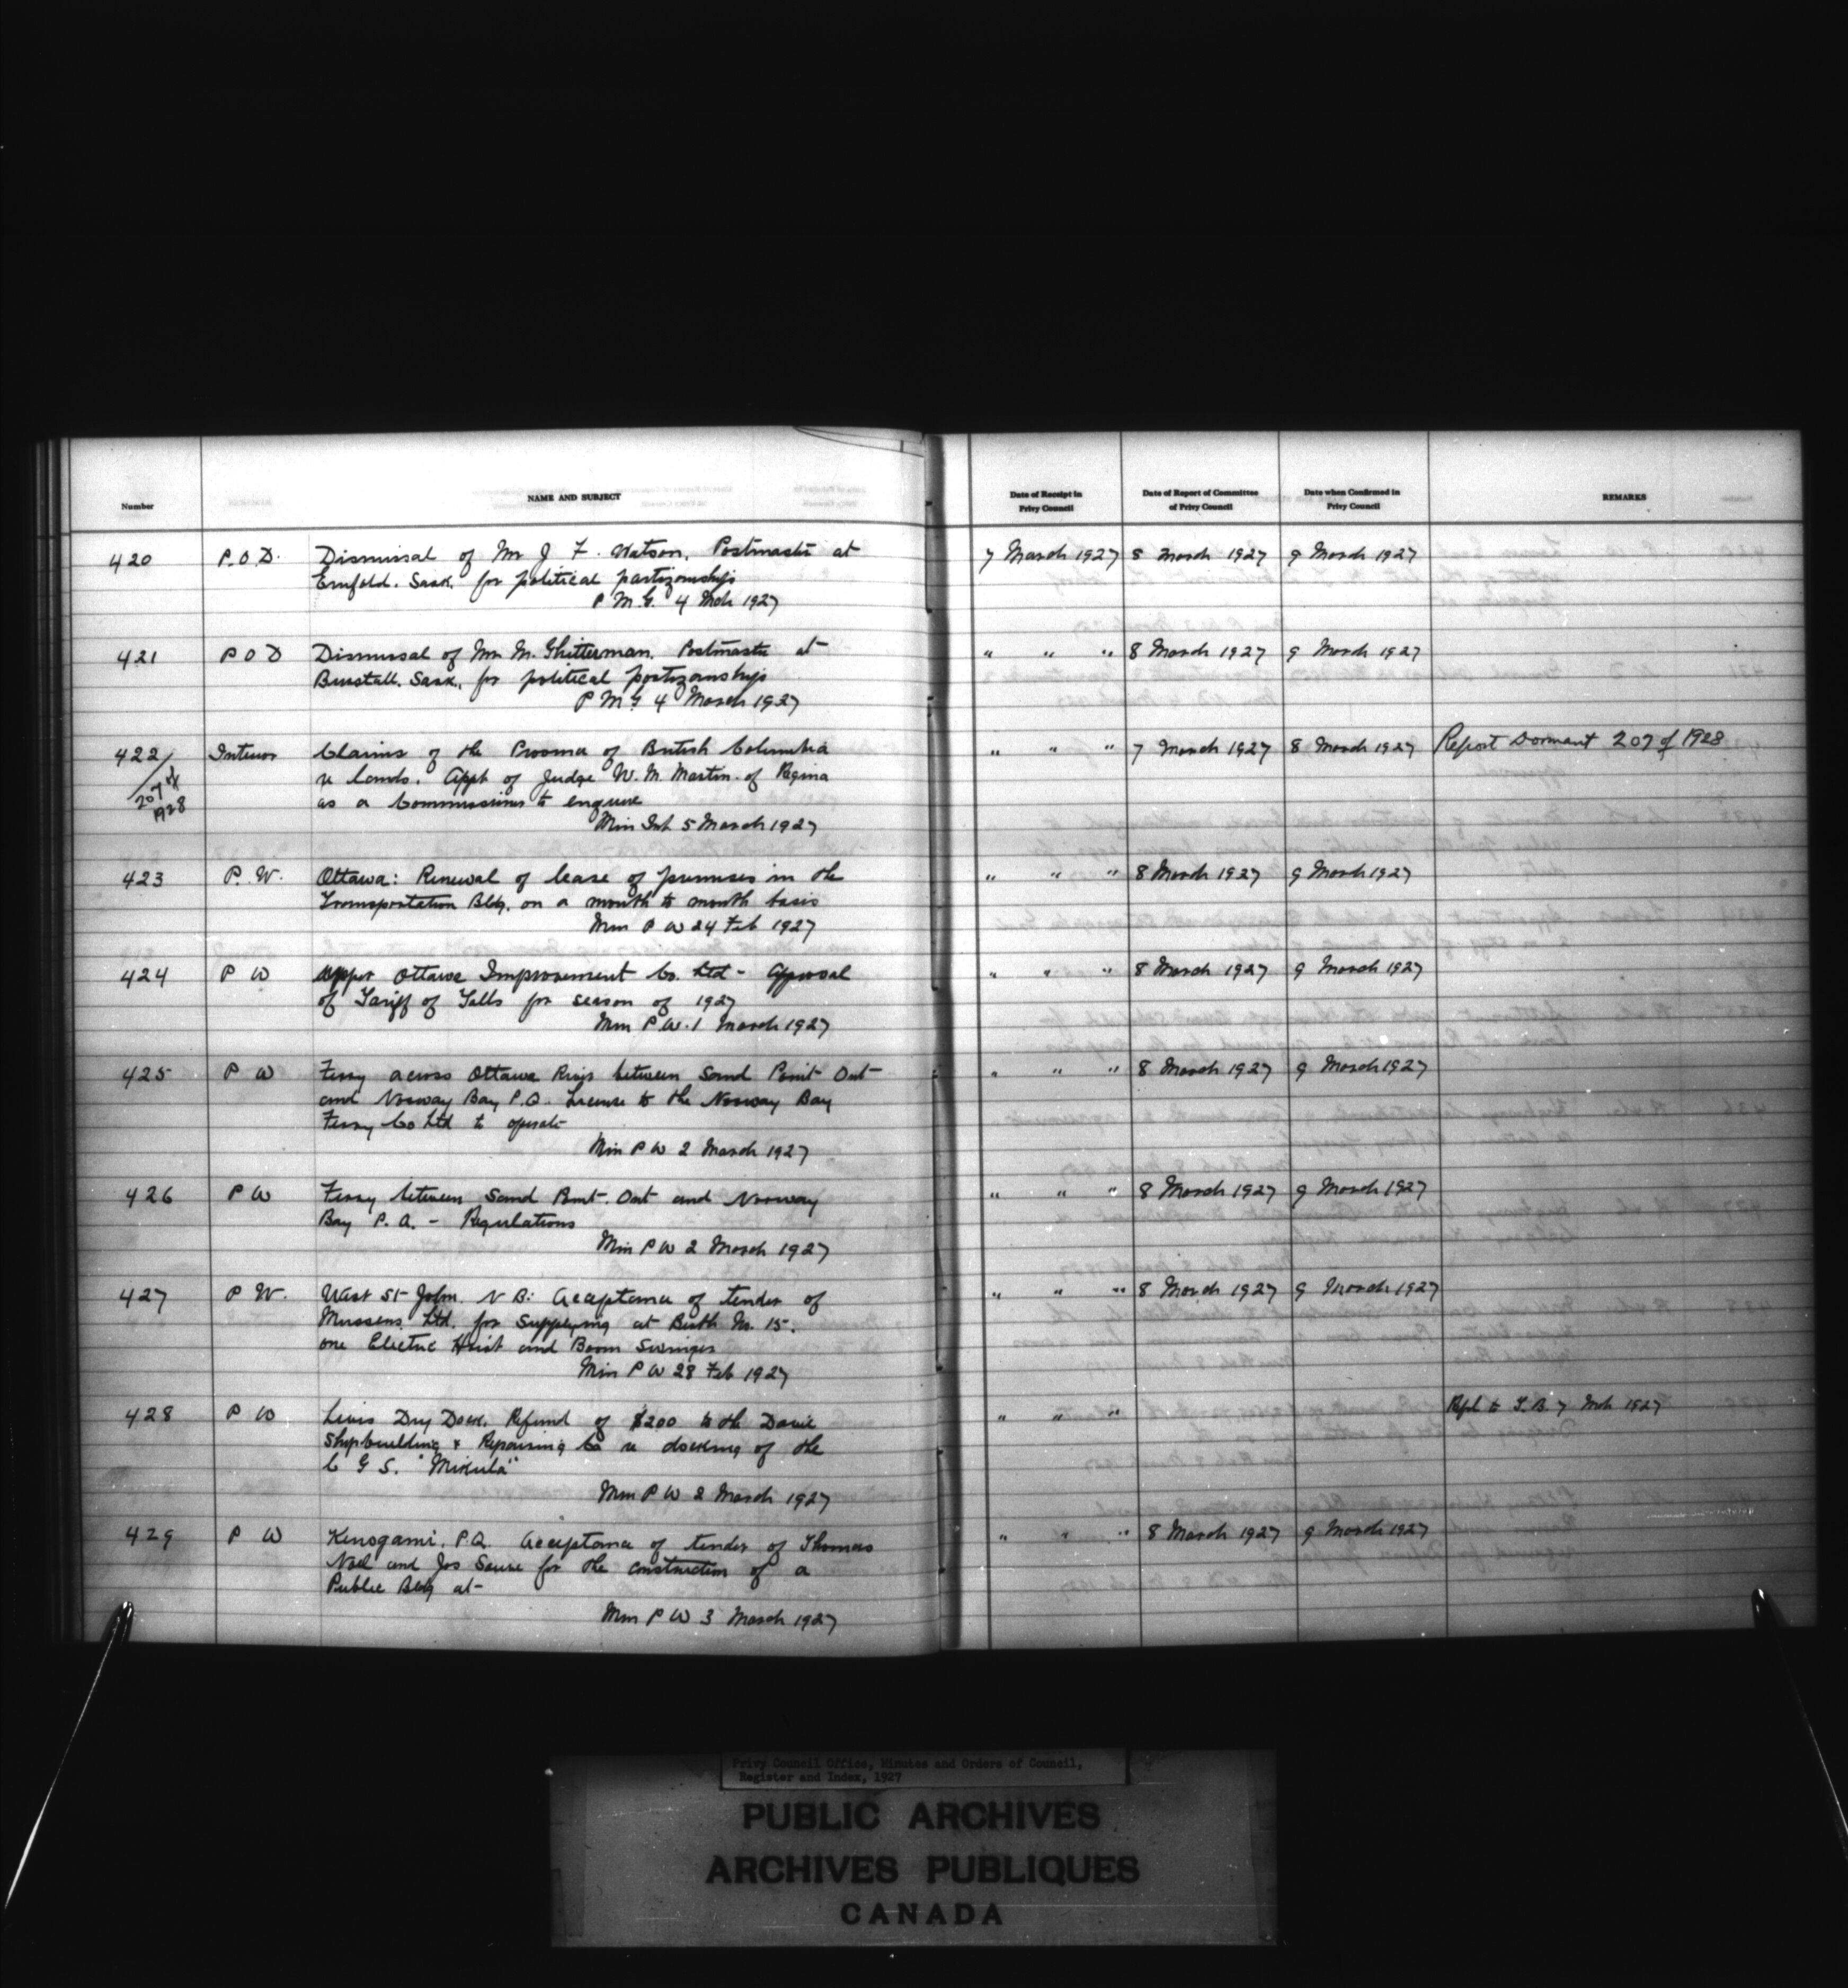 Number
NAME AND SUBJECT
Date of Receipt in Privy Council
Date of Report of Committee of Privy Council
Date when Confirmed in Privy Council
REMARKS
420 P.O.D. Dismissal of Mr J F. Watson, Postmaster at 7 March 1927 8 March 1927 9 March 1927
Ernfold. Sask. for political partizanship
P M.G. 4 Mch 1927
421 P O D Dismissal of Mr M. Ghitterman. Postmaster at " " " 8 March 1927 9 March 1927
Burstall. Sask. for political partizanship
P M G 4 March 1927
422/ Interior Claims of the Province of British Columbia " " " 7 March 1927 8 March 1927 Report Dormant 207 of 1928
207 of 1928 re lands. Appt of Judge W. M. Martin of Regina
as a Commissioner to enquire
Min Int 5 March 1927
423 P. W. Ottawa: Renewal of lease of premises in the " " " 8 March 1927 9 March 1927
Transportation Bldg. on a month to month basis
Min P W 24 Feb 1927
424 P W Upper Ottawa Improvement Co. Ltd - Approval " " " 8 March 1927 9 March 1927
of Tariff of Tolls for season of 1927
Min P.W. 1 March 1927
425 P W Ferry across Ottawa River between Sand Point Ont " " " 8 March 1927 9 March 1927
and Norway Bay P.Q. License to the Norway Bay
Ferry Co Ltd to operate
Min P W 2 March 1927
426 P W Ferry between Sand Point. Ont and Norway " " " 8 March 1927 9 March 1927
Bay P. Q. - Regulations
Min P W 2 March 1927
427 P W. West St John. N B: Acceptance of tender of " " " 8 March 1927 9 March 1927
Mussens Ltd. for supplying at Berth No. 15.
one Electric Hoist and Boom Swinger
Min P W 28 Feb 1927
428 P W Levis Dry Dock. Refund of $200 to the Davie " " " Refd to T.B 7 Mch 1927
Shipbuilding & Repairing Co re docking of the
C G S. "Mikula"
Min P W 2 March 1927
429 P W Kenogami. P.Q. Acceptance of tender of Thomas " " " 8 March 1927 9 March 1927
Noel and Jos for the construction of a
Public Bldg at-
Min P W 3 March 1927
Privy Council Office, Minutes and Orders of Council,
Register and Index, 1927
PUBLIC ARCHIVES
ARCHIVES PUBLIQUES
CANADA